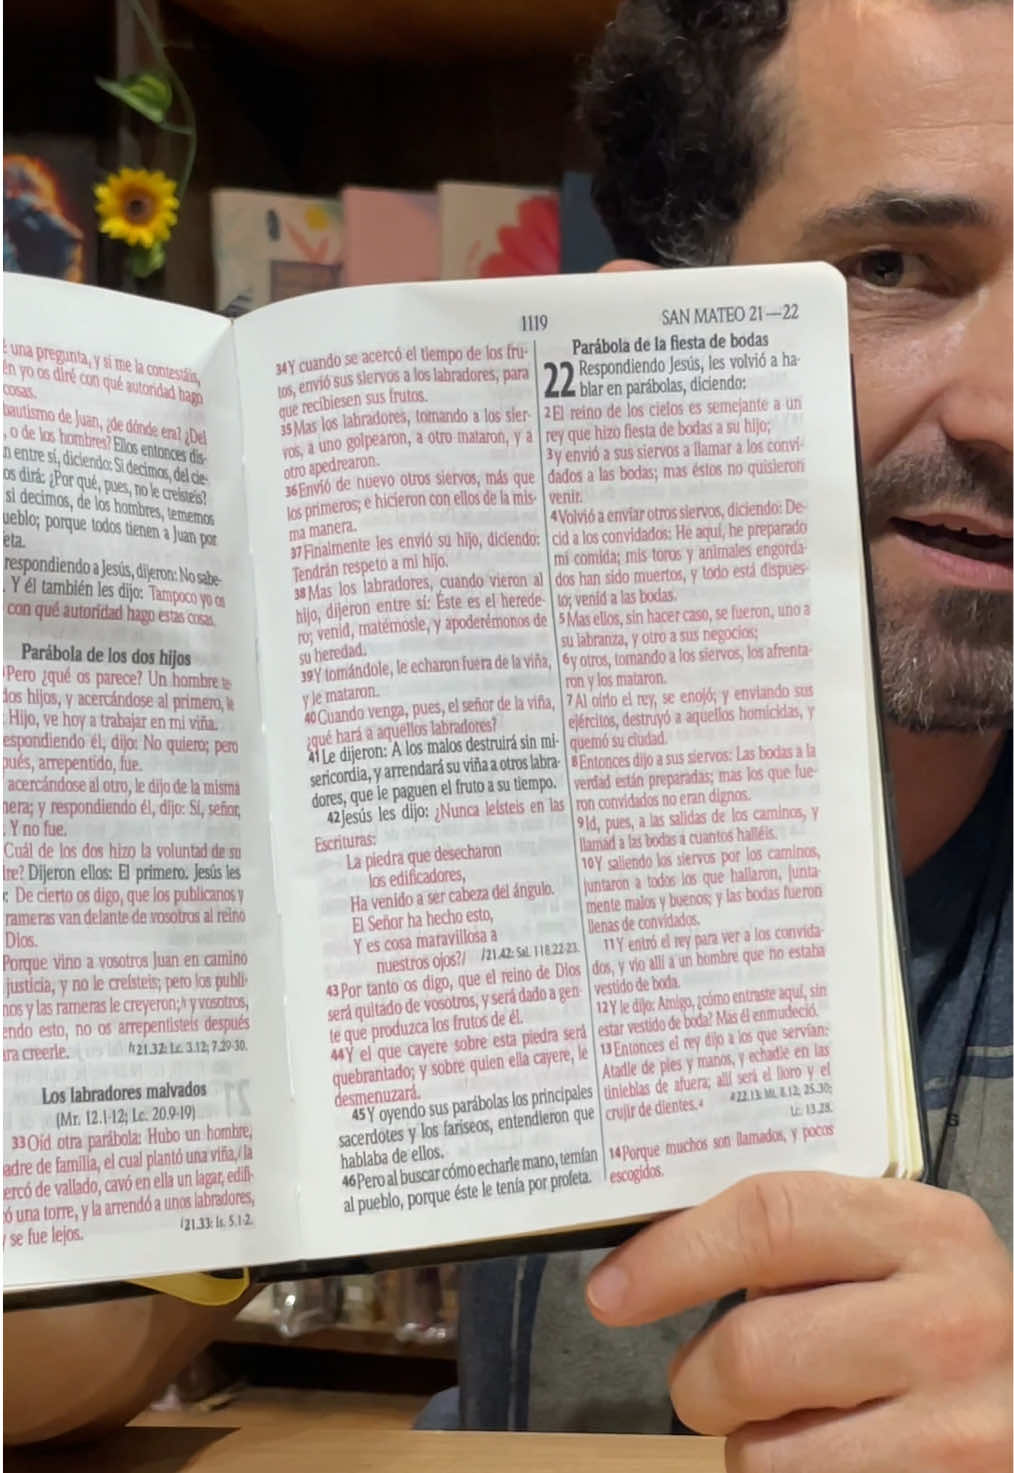 una pregunta, y si me la contestáis,
yo os diré con qué autoridad hago
cosas.
bautismo de Juan, ¿de dónde era? ¿Del
o de los hombres? Ellos entonces dis-
entre sí, diciendo: Si decimos, del cie-
os dirá: ¿Por qué, pues, no le creísteis?
si decimos, de los hombres, tememos
ueblo; porque todos tienen a Juan por
eta.
respondiendo a Jesús, dijeron: No sabe-
. Y él también les dijo: Tampoco yo os
con qué autoridad hago estas cosas.
Parábola de los dos hijos
Pero ¿qué os parece? Un hombre te-
dos hijos, y acercándose al primero, le
Hijo, ve hoy a trabajar en mi viña.
espondiendo él, dijo: No quiero; pero
pués, arrepentido, fue.
acercándose al otro, le dijo de la misma
nera; y respondiendo él, dijo: Sí, señor,
. Y no fue.
Cuál de los dos hizo la voluntad de su
re? Dijeron ellos: El primero. Jesús les
: De cierto os digo, que los publicanos y
rameras van delante de vosotros al reino
Dios.
Porque vino a vosotros Juan en camino
justicia, y no le creísteis; pero los publi-
nos y las rameras le creyeron; y vosotros,
endo esto, no os arrepentisteis después
ra creerle. 21.32: Lc. 3.12; 7.29-30.
Los labradores malvados
(Mr. 12.1-12; Lc. 20.9-19)
33Oíd otra parábola: Hubo un hombre,
adre de familia, el cual plantó una viña, la
ercó de vallado, cavó en ella un lagar, edifi-
ó una torre, y la arrendó a unos labradores,
y se fue lejos. 21.33: Is. 5.1-2.
1119
SAN MATEO 21—22
34Y cuando se acercó el tiempo de los fru-
tos, envió sus siervos a los labradores, para
que recibiesen sus frutos.
35Mas los labradores, tomando a los sier-
vos, a uno golpearon, a otro mataron, y a
otro apedrearon.
36Envió de nuevo otros siervos, más que
los primeros; e hicieron con ellos de la mis-
ma manera.
37Finalmente les envió su hijo, diciendo:
Tendrán respeto a mi hijo.
38Mas los labradores, cuando vieron al
hijo, dijeron entre sí: Éste es el herede-
ro; venid, matémosle, y apoderémonos de
su heredad.
39Y tomándole, le echaron fuera de la viña,
y le mataron.
40Cuando venga, pues, el señor de la viña,
¿qué hará a aquellos labradores?
41Le dijeron: A los malos destruirá sin mi-
sericordia, y arrendará su viña a otros labra-
dores, que le paguen el fruto a su tiempo.
42Jesús les dijo: ¿Nunca leísteis en las
Escrituras:
La piedra que desecharon
los edificadores,
Ha venido a ser cabeza del ángulo.
El Señor ha hecho esto,
Y es cosa maravillosa a
nuestros ojos? 21.42: Sal. 118.22-23.
43Por tanto os digo, que el reino de Dios
será quitado de vosotros, y será dado a gen-
te que produzca los frutos de él.
44Y el que cayere sobre esta piedra será
quebrantado; y sobre quien ella cayere, le
desmenuzará.
45Y oyendo sus parábolas los principales
sacerdotes y los fariseos, entendieron que
hablaba de ellos.
46Pero al buscar cómo echarle mano, temían
al pueblo, porque éste le tenía por profeta.
Parábola de la fiesta de bodas
22 Respondiendo Jesús, les volvió a ha-
blar en parábolas, diciendo:
2El reino de los cielos es semejante a un
rey que hizo fiesta de bodas a su hijo;
3y envió a sus siervos a llamar a los convi-
dados a las bodas; mas éstos no quisieron
venir.
4Volvió a enviar otros siervos, diciendo: De-
cid a los convidados: He aquí, he preparado
mi comida; mis toros y animales engorda-
dos han sido muertos, y todo está dispues-
to; venid a las bodas.
5Mas ellos, sin hacer caso, se fueron, uno a
su labranza, y otro a sus negocios;
6y otros, tomando a los siervos, los afrenta-
ron y los mataron.
7Al oírlo el rey, se enojó; y enviando sus
ejércitos, destruyó a aquellos homicidas, y
quemó su ciudad.
8Entonces dijo a sus siervos: Las bodas a la
verdad están preparadas; mas los que fue-
ron convidados no eran dignos.
9Id, pues, a las salidas de los caminos, y
llamad a las bodas a cuantos halléis.
10Y saliendo los siervos por los caminos,
juntaron a todos los que hallaron, junta-
mente malos y buenos; y las bodas fueron
llenas de convidados.
11Y entró el rey para ver a los convida-
dos, y vio allí a un hombre que no estaba
vestido de boda.
12Y le dijo: Amigo, ¿cómo entraste aquí, sin
estar vestido de boda? Mas él enmudeció.
13Entonces el rey dijo a los que servían:
Atadle de pies y manos, y echadle en las
tinieblas de afuera; allí será el lloro y el
crujir de dientes. 22.13: Mt. 8.12; 25.30;
Lc. 13.28.
14Porque muchos son llamados, y pocos
escogidos.